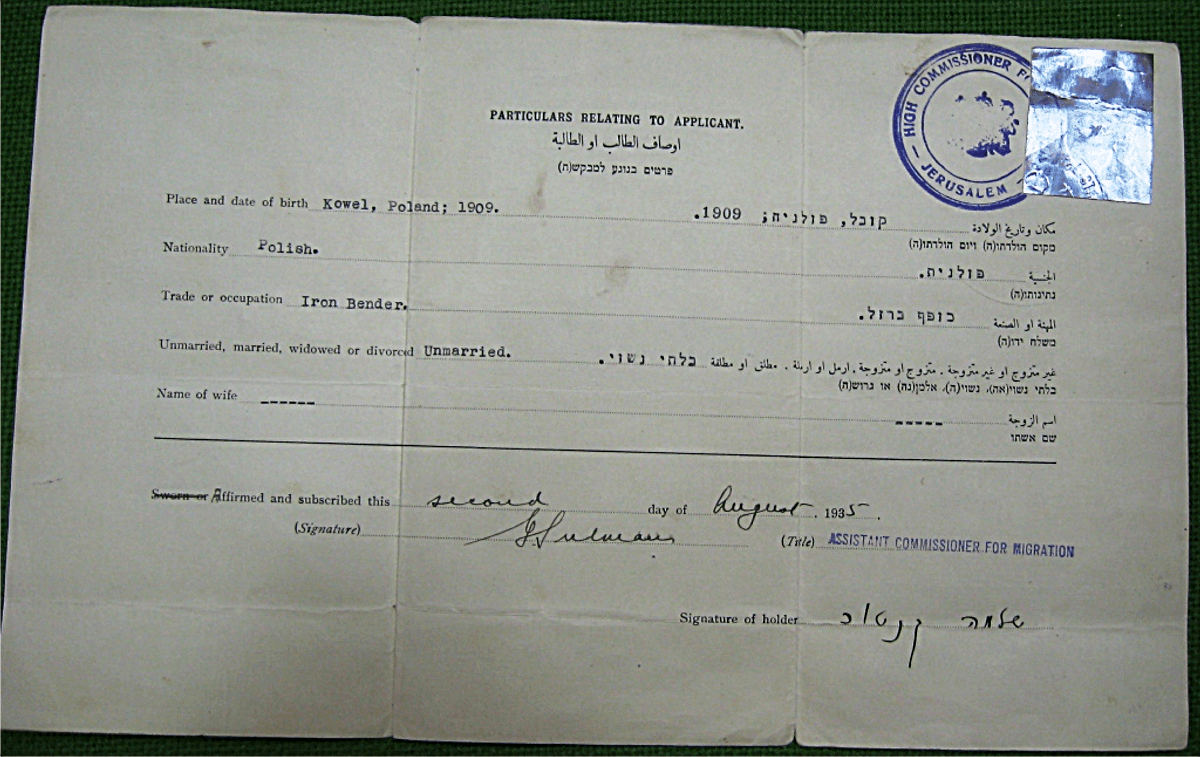 HIGH COMMISSIONER F
— JERUSALEM —
PARTICULARS RELATING TO APPLICANT.
اوصاف الطالب او الطالبة
פרטים בנוגע למבקש(ה)
Place and date of birth Kowel, Poland; 1909. קובל, פולניה; 1909. مكان وتاريخ الولادة
מקום הולדתו(ה) ויום הולדתו(ה)
Nationality Polish. פולנית. الجنسية
נתינותו(ה)
Trade or occupation Iron Bender. כופף ברזל. المهنة او الصنعة
משלח ידו(ה)
Unmarried, married, widowed or divorced Unmarried. בלתי נשוי. غير متزوج او غير متزوجة . متزوج او متزوجة . ارمل او ارملة . مطلق او مطلقة
בלתי נשוי(אה), נשוי(ה), אלמן(נה) או גרוש(ה)
Name of wife ------ ----- اسم الزوجة
שם אשתו
Sworn or Affirmed and subscribed this second day of August. 1935.
(Signature) (Title) ASSISTANT COMMISSIONER FOR MIGRATION
Signature of holder שלמה